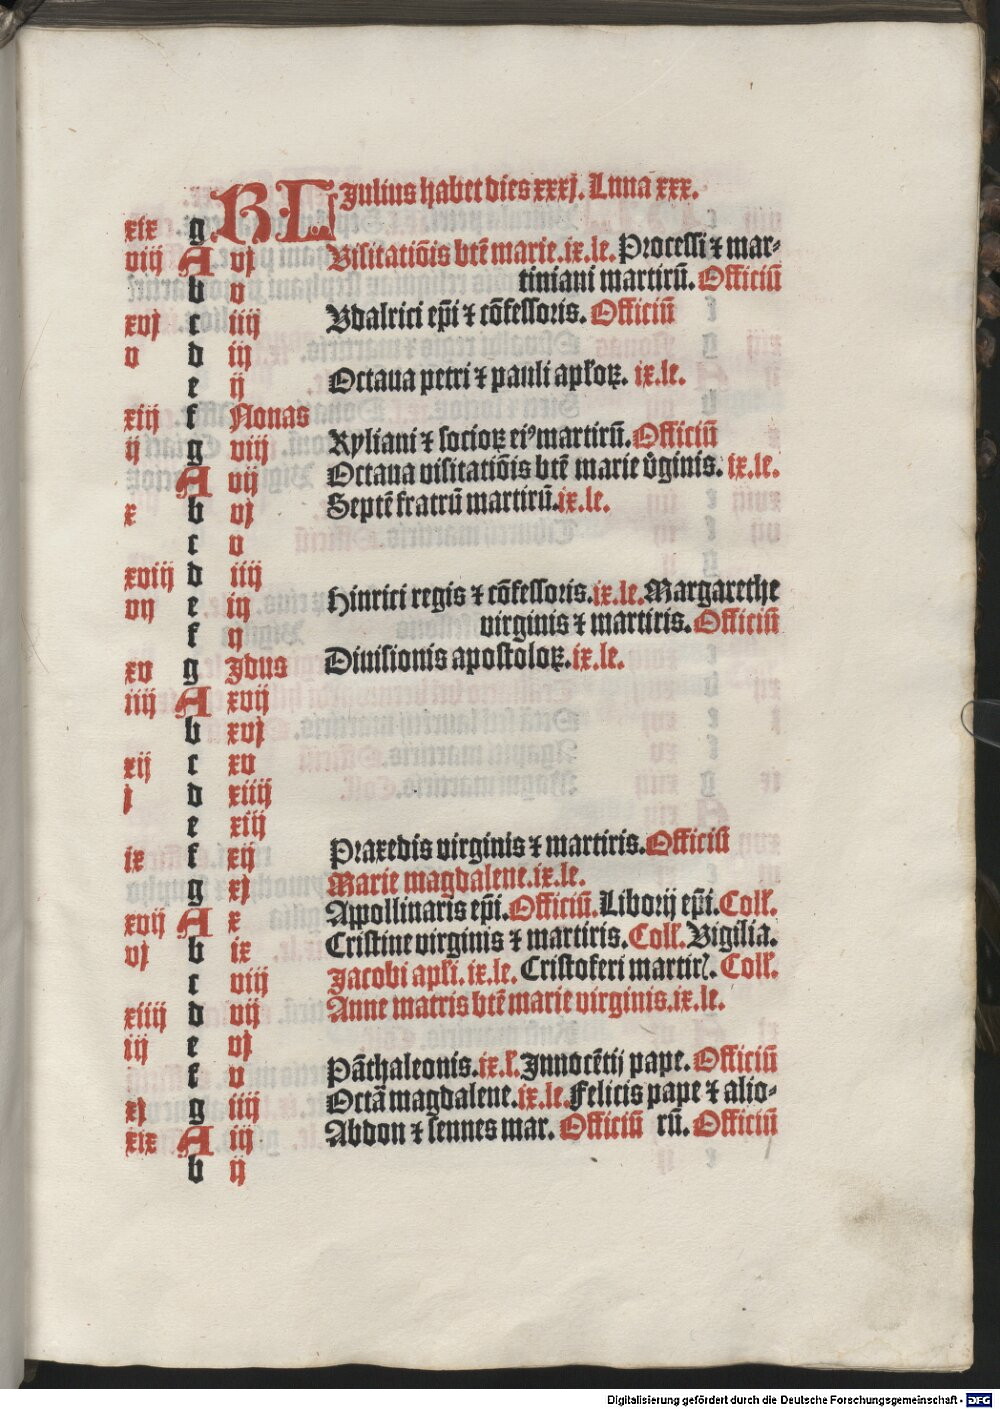 KL Julius habet dies xxxj. Luna xxx.
xix g
viij A vj Visitatiõis btẽ marie.ix.le. Processi ⁊ mar-
b v tiniani martirũ. Officiũ
xvj c iiij Vdalrici ep̃i ⁊ cõfessoris. Officiũ
v d iij
e ij Octaua petri ⁊ pauli apl̃oꝝ. ix.le.
xiij f Nonas
ij g viij Kyliani ⁊ socioꝝ eiꝰ martirũ. Officiũ
A vij Octaua visitatiõis btẽ marie v̾ginis. ix.le.
x b vj Septẽ fratrũ martirũ.ix.le.
c v
xviij d iiij
vij e iij Hinrici regis ⁊ cõfessoris.ix.le. Margarethe
f ij virginis ⁊ martiris. Officiũ
xv g Jdus Diuisionis apostoloꝝ.ix.le.
iiij A xvij
b xvj
xij c xv
j d xiiij
e xiij
ix f xij Praxedis virginis ⁊ martiris. Officiũ
g xj Marie magdalene.ix.le.
xvij A x Appollinaris ep̃i. Officiũ. Liborij ep̃i. Coll̃.
vj b ix Cristine virginis ⁊ martiris. Coll̃. Vigilia.
c viij Jacobi apl̃i. ix.le. Cristoferi martir̃. Coll̃.
xiiij d vij Anne matris btẽ marie virginis.ix.le.
iij e vj
f v Pãthaleonis.ix.l̃. Jnnocẽtij pape. Officiũ
xj g iiij Octã magdalene.ix.le. Felicis pape ⁊ alio-
xix A iij Abdon ⁊ sennes mar. Officiũ rũ. Officiũ
b ij
Digitalisierung gefördert durch die Deutsche Forschungsgemeinschaft - DFG